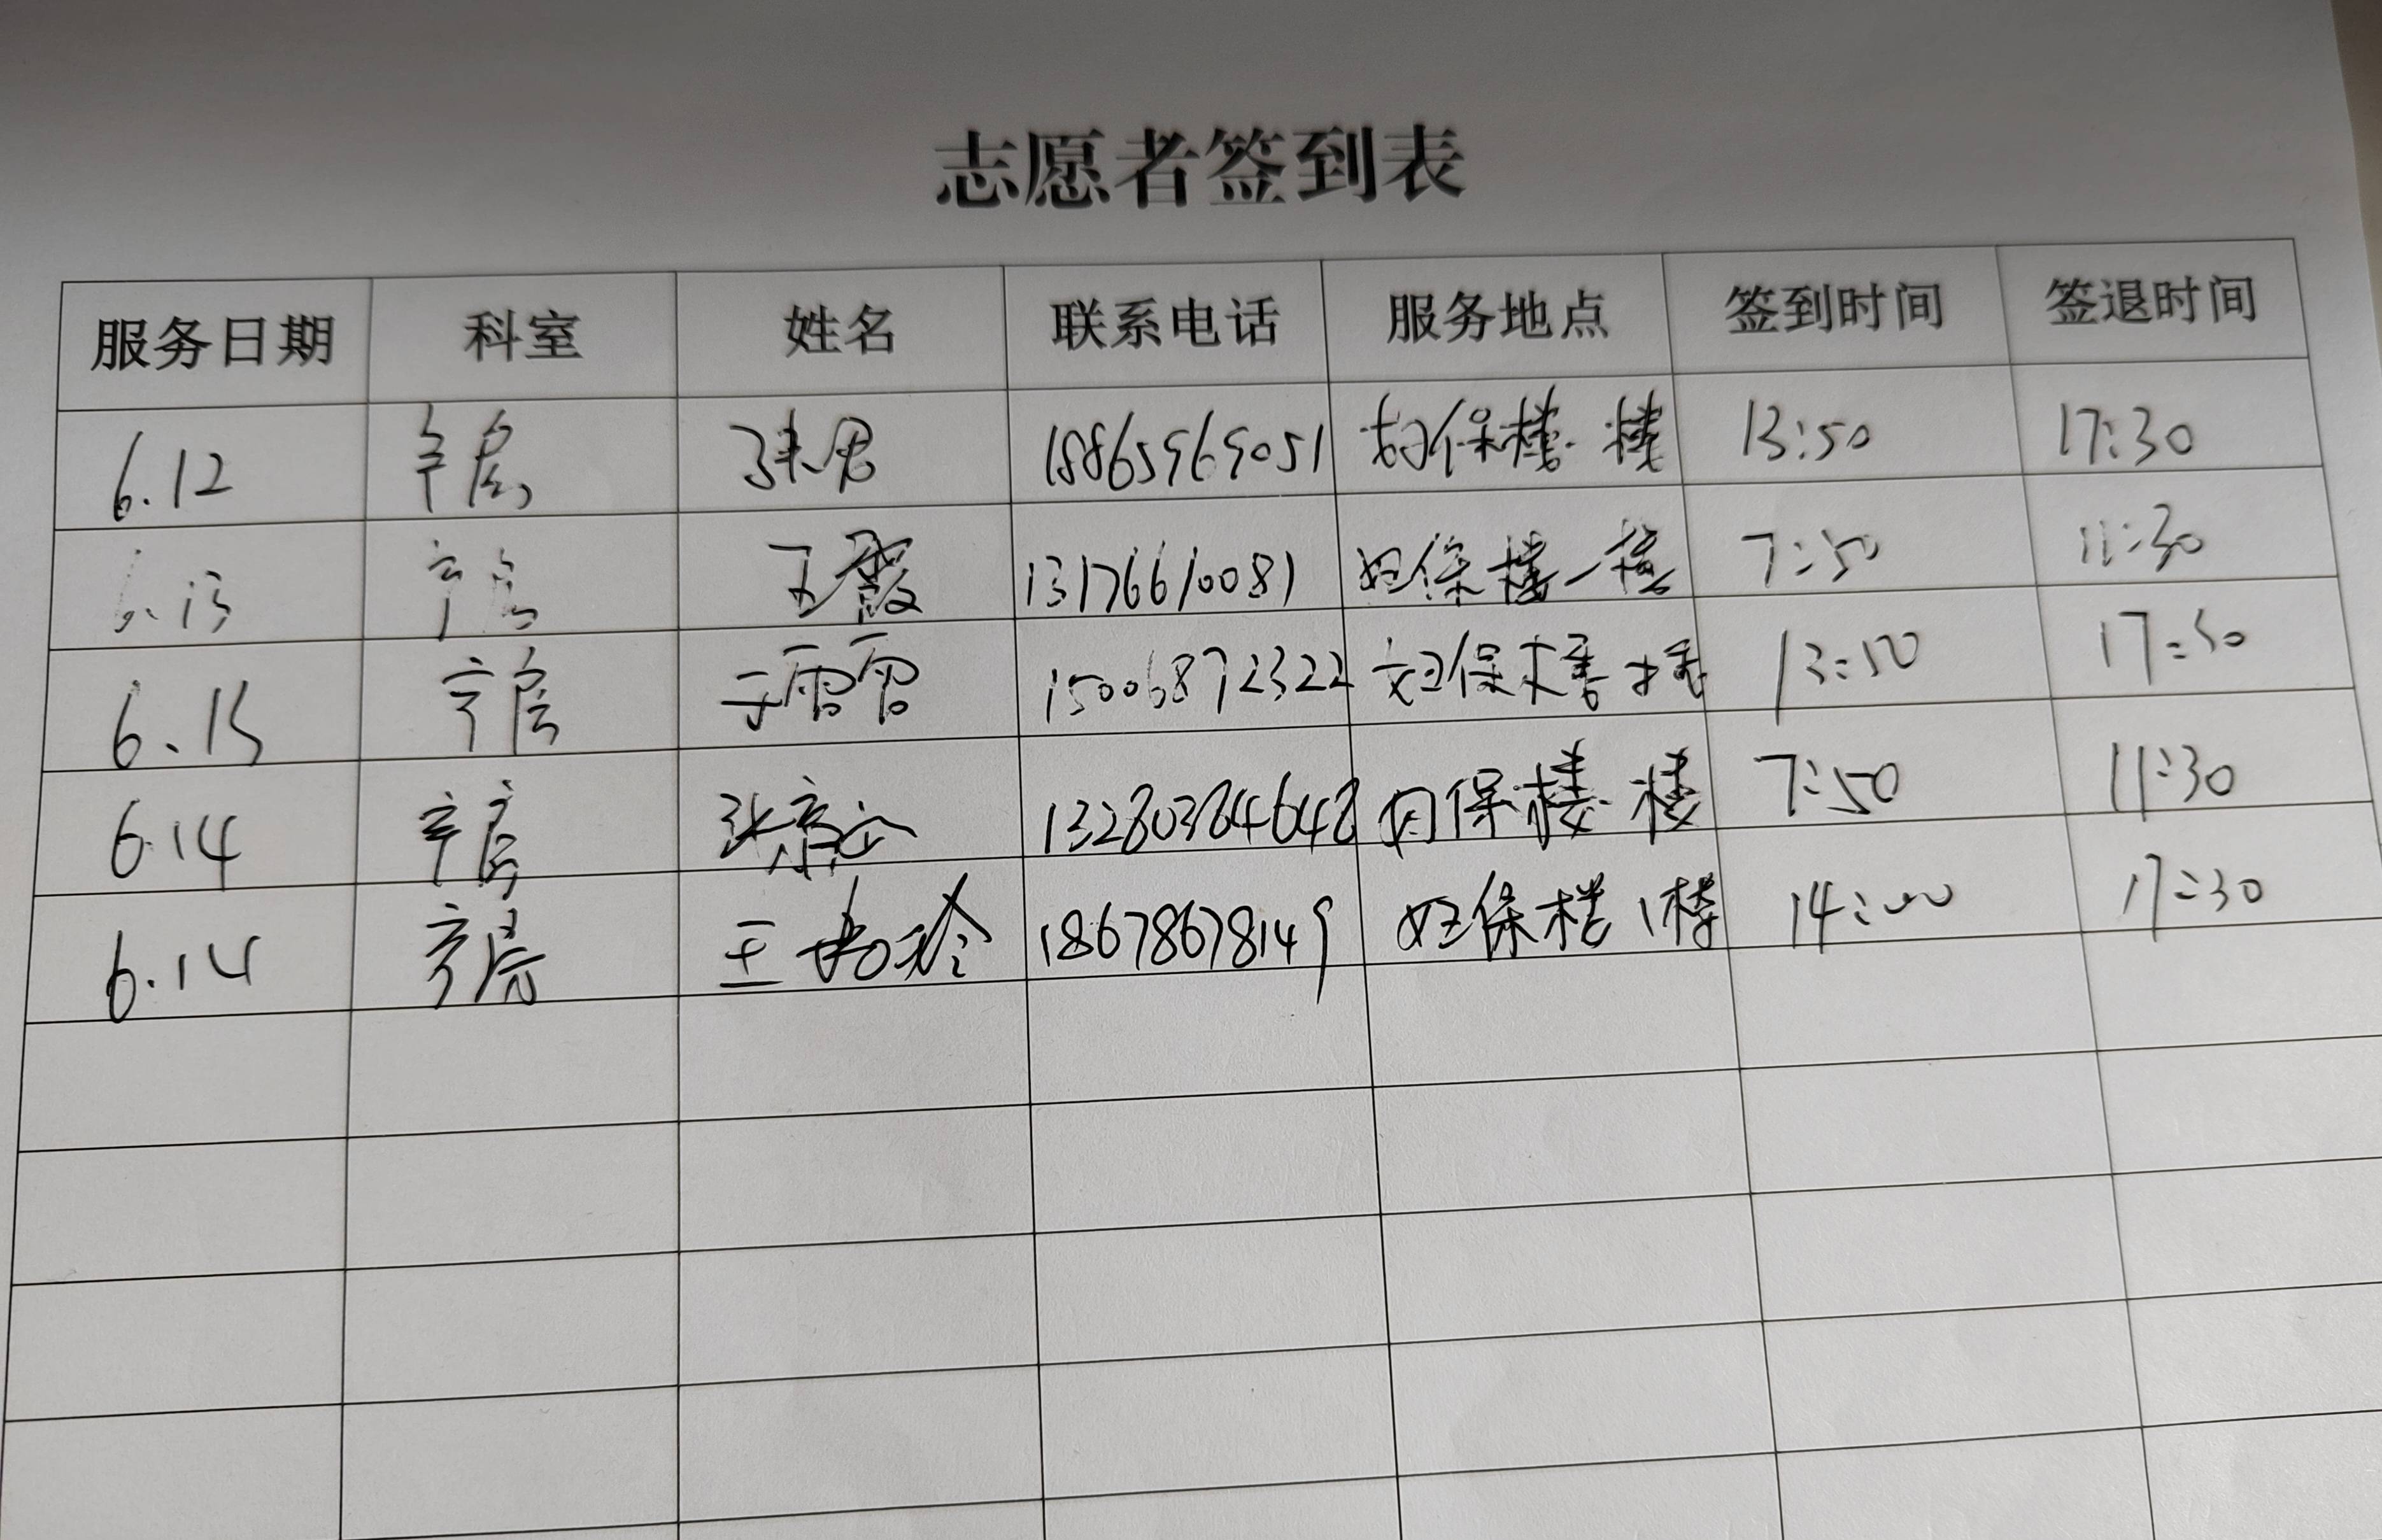 志愿者签到表
服务日期 科室 姓名 联系电话 服务地点 签到时间 签退时间
6.12 产房 张君 18865969051 妇保楼一楼 13:50 17:30
6.13 产房 王霞 13176610081 妇保楼一楼 7:50 11:30
6.13 产房 于雷雷 15006872322 妇保楼一楼 13:50 17:30
6.14 产房 13280384648 妇保楼一楼 7:50 11:30
6.14 产房 王 玲 18678678149 妇保楼1楼 14:00 17:30